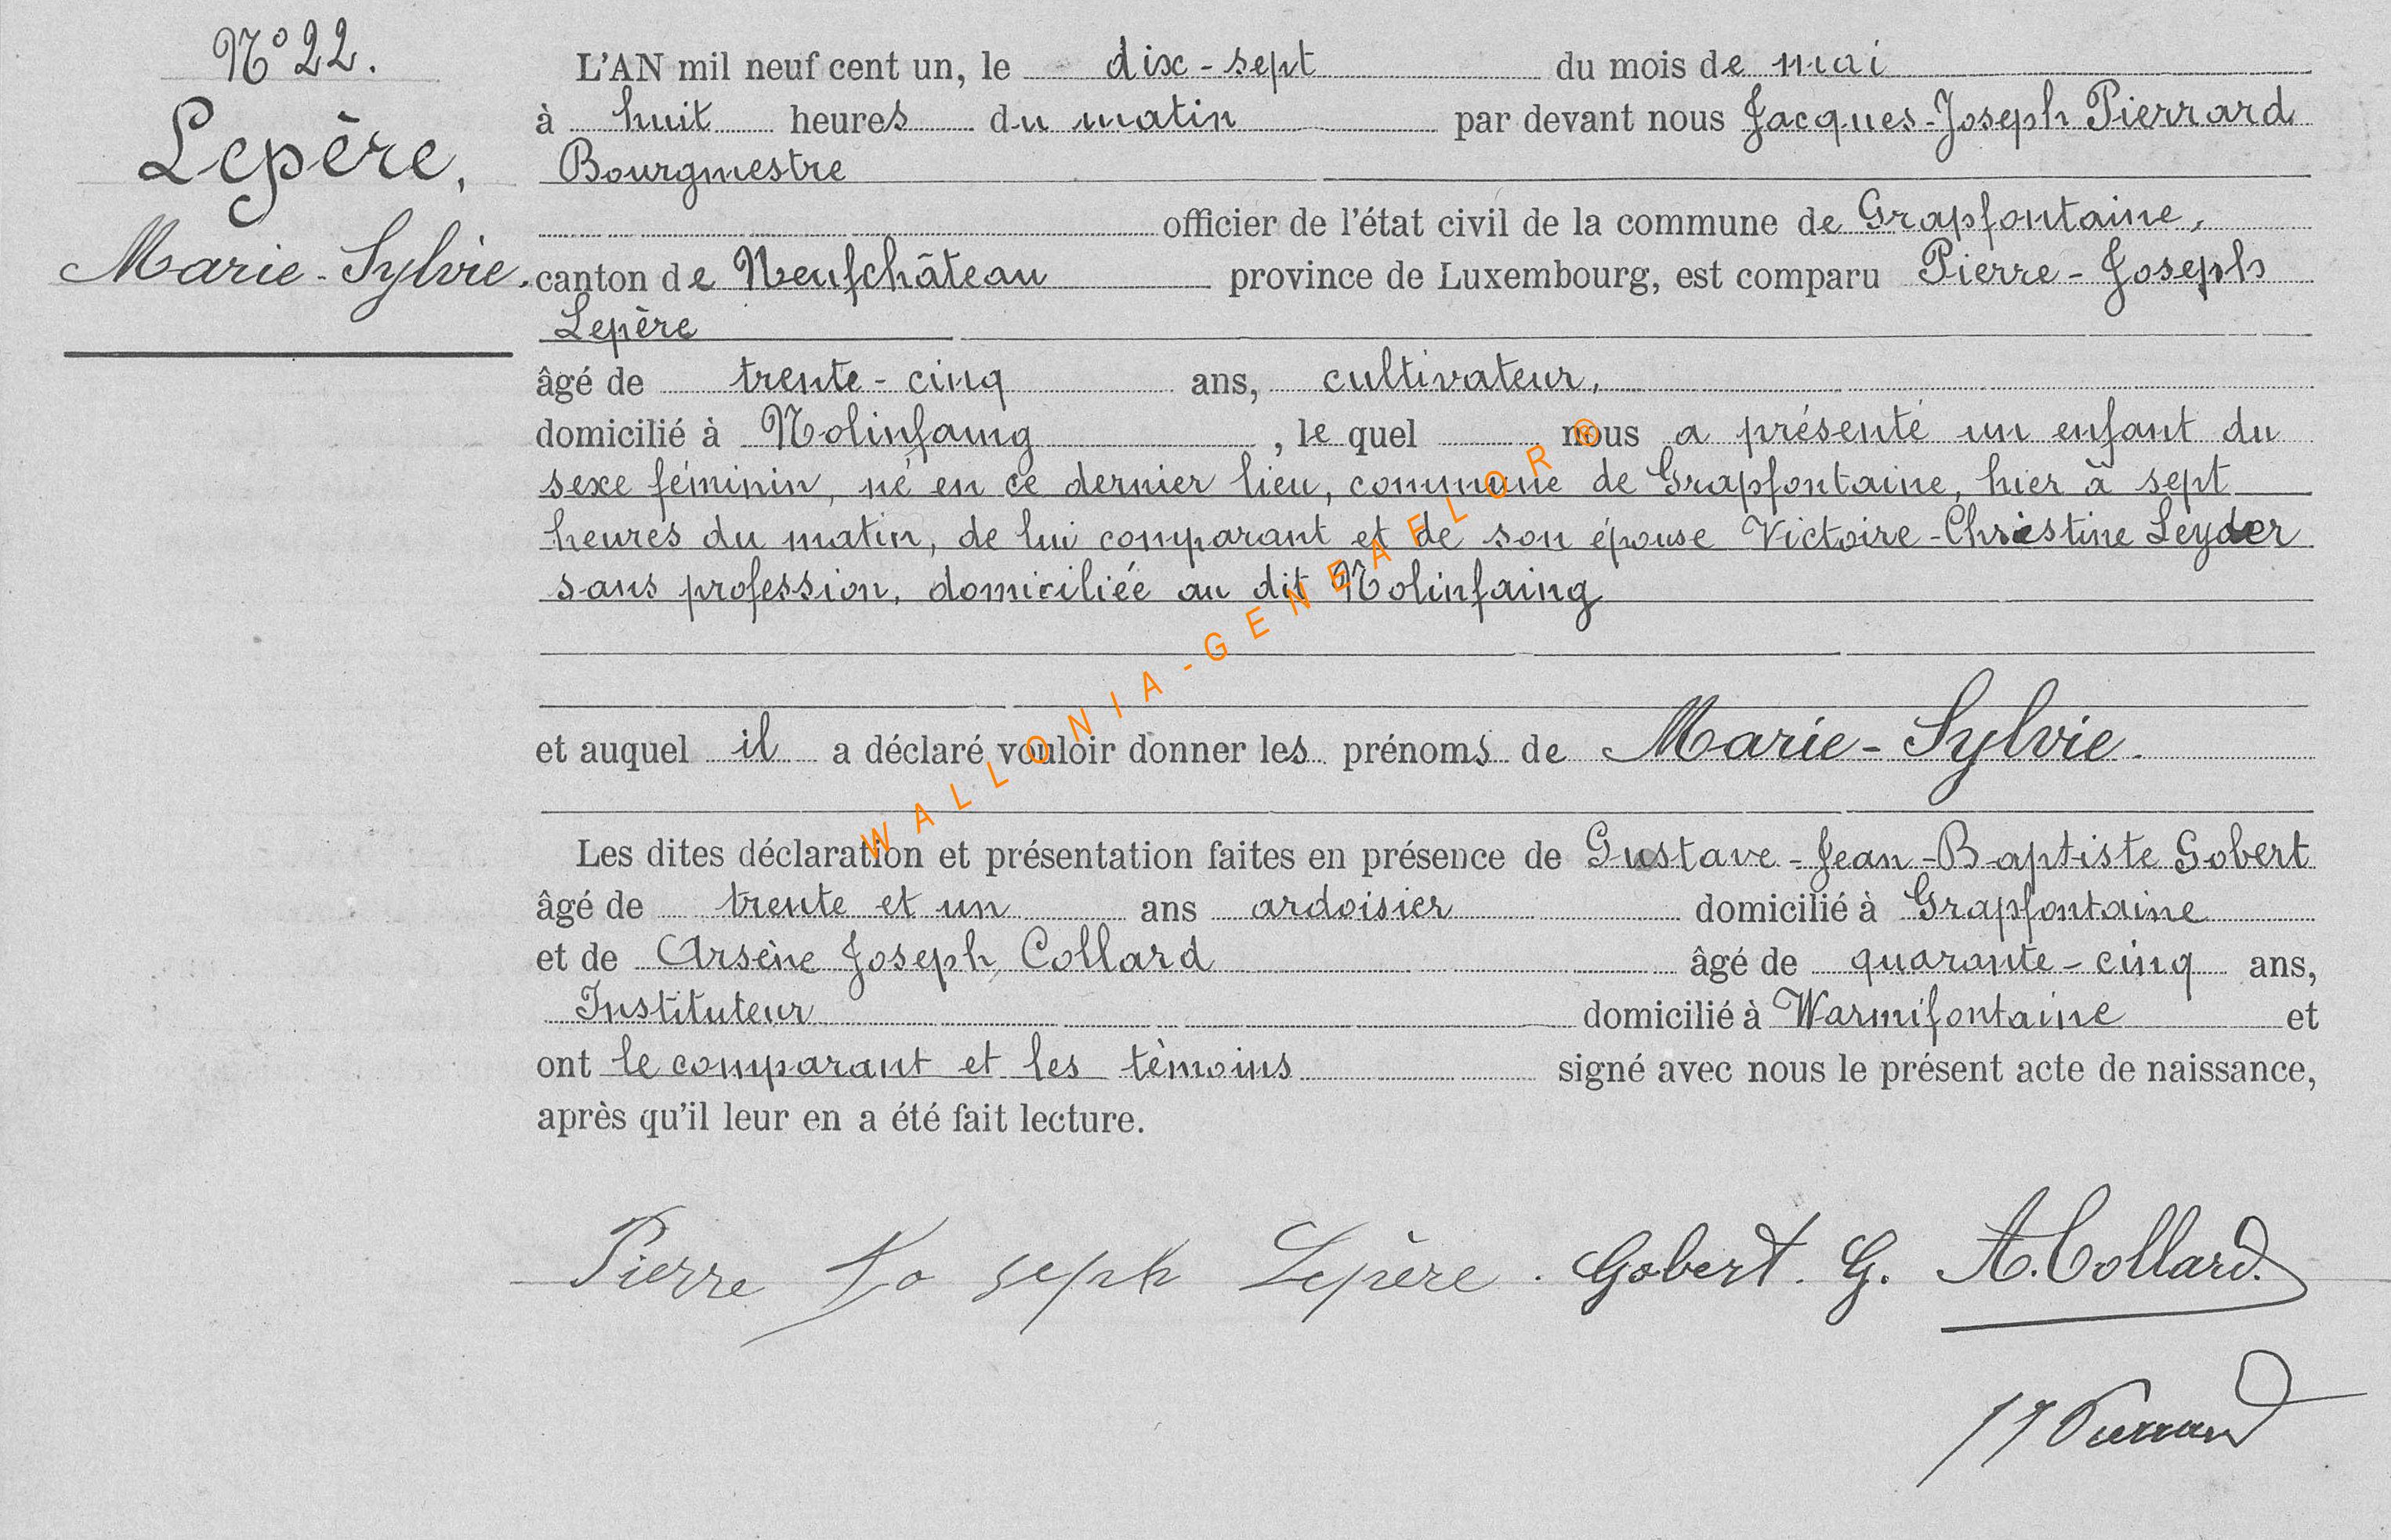 N° 22.
Lepère,
Marie-Sylvie.
L'AN mil neuf cent un, le dix-sept du mois de mai
à huit heures du matin par devant nous Jacques-Joseph Pierrard
Bourgmestre
officier de l'état civil de la commune de Grapfontaine,
canton de Neufchâteau province de Luxembourg, est comparu Pierre-Joseph
Lepère
âgé de trente-cinq ans, cultivateur,
domicilié à Nolinfaing, le quel nous a présenté un enfant du
sexe féminin, né en ce dernier lieu, commune de Grapfontaine, hier à sept
heures du matin, de lui comparant et de son épouse Victoire-Christine Leyder
sans profession, domiciliée au dit Nolinfaing
et auquel il a déclaré vouloir donner les prénoms de Marie-Sylvie.
Les dites déclaration et présentation faites en présence de Gustave-Jean-Baptiste Gobert
âgé de trente et un ans ardoisier domicilié à Grapfontaine
et de Arsène Joseph Collard âgé de quarante-cinq ans,
Instituteur domicilié à Warmifontaine et
ont le comparant et les témoins signé avec nous le présent acte de naissance,
après qu'il leur en a été fait lecture.
Pierre Jo seph Lepère. Gobert. G. A. Collard.
JJ Pierrard
WALLONIA-GENEAFLOR®